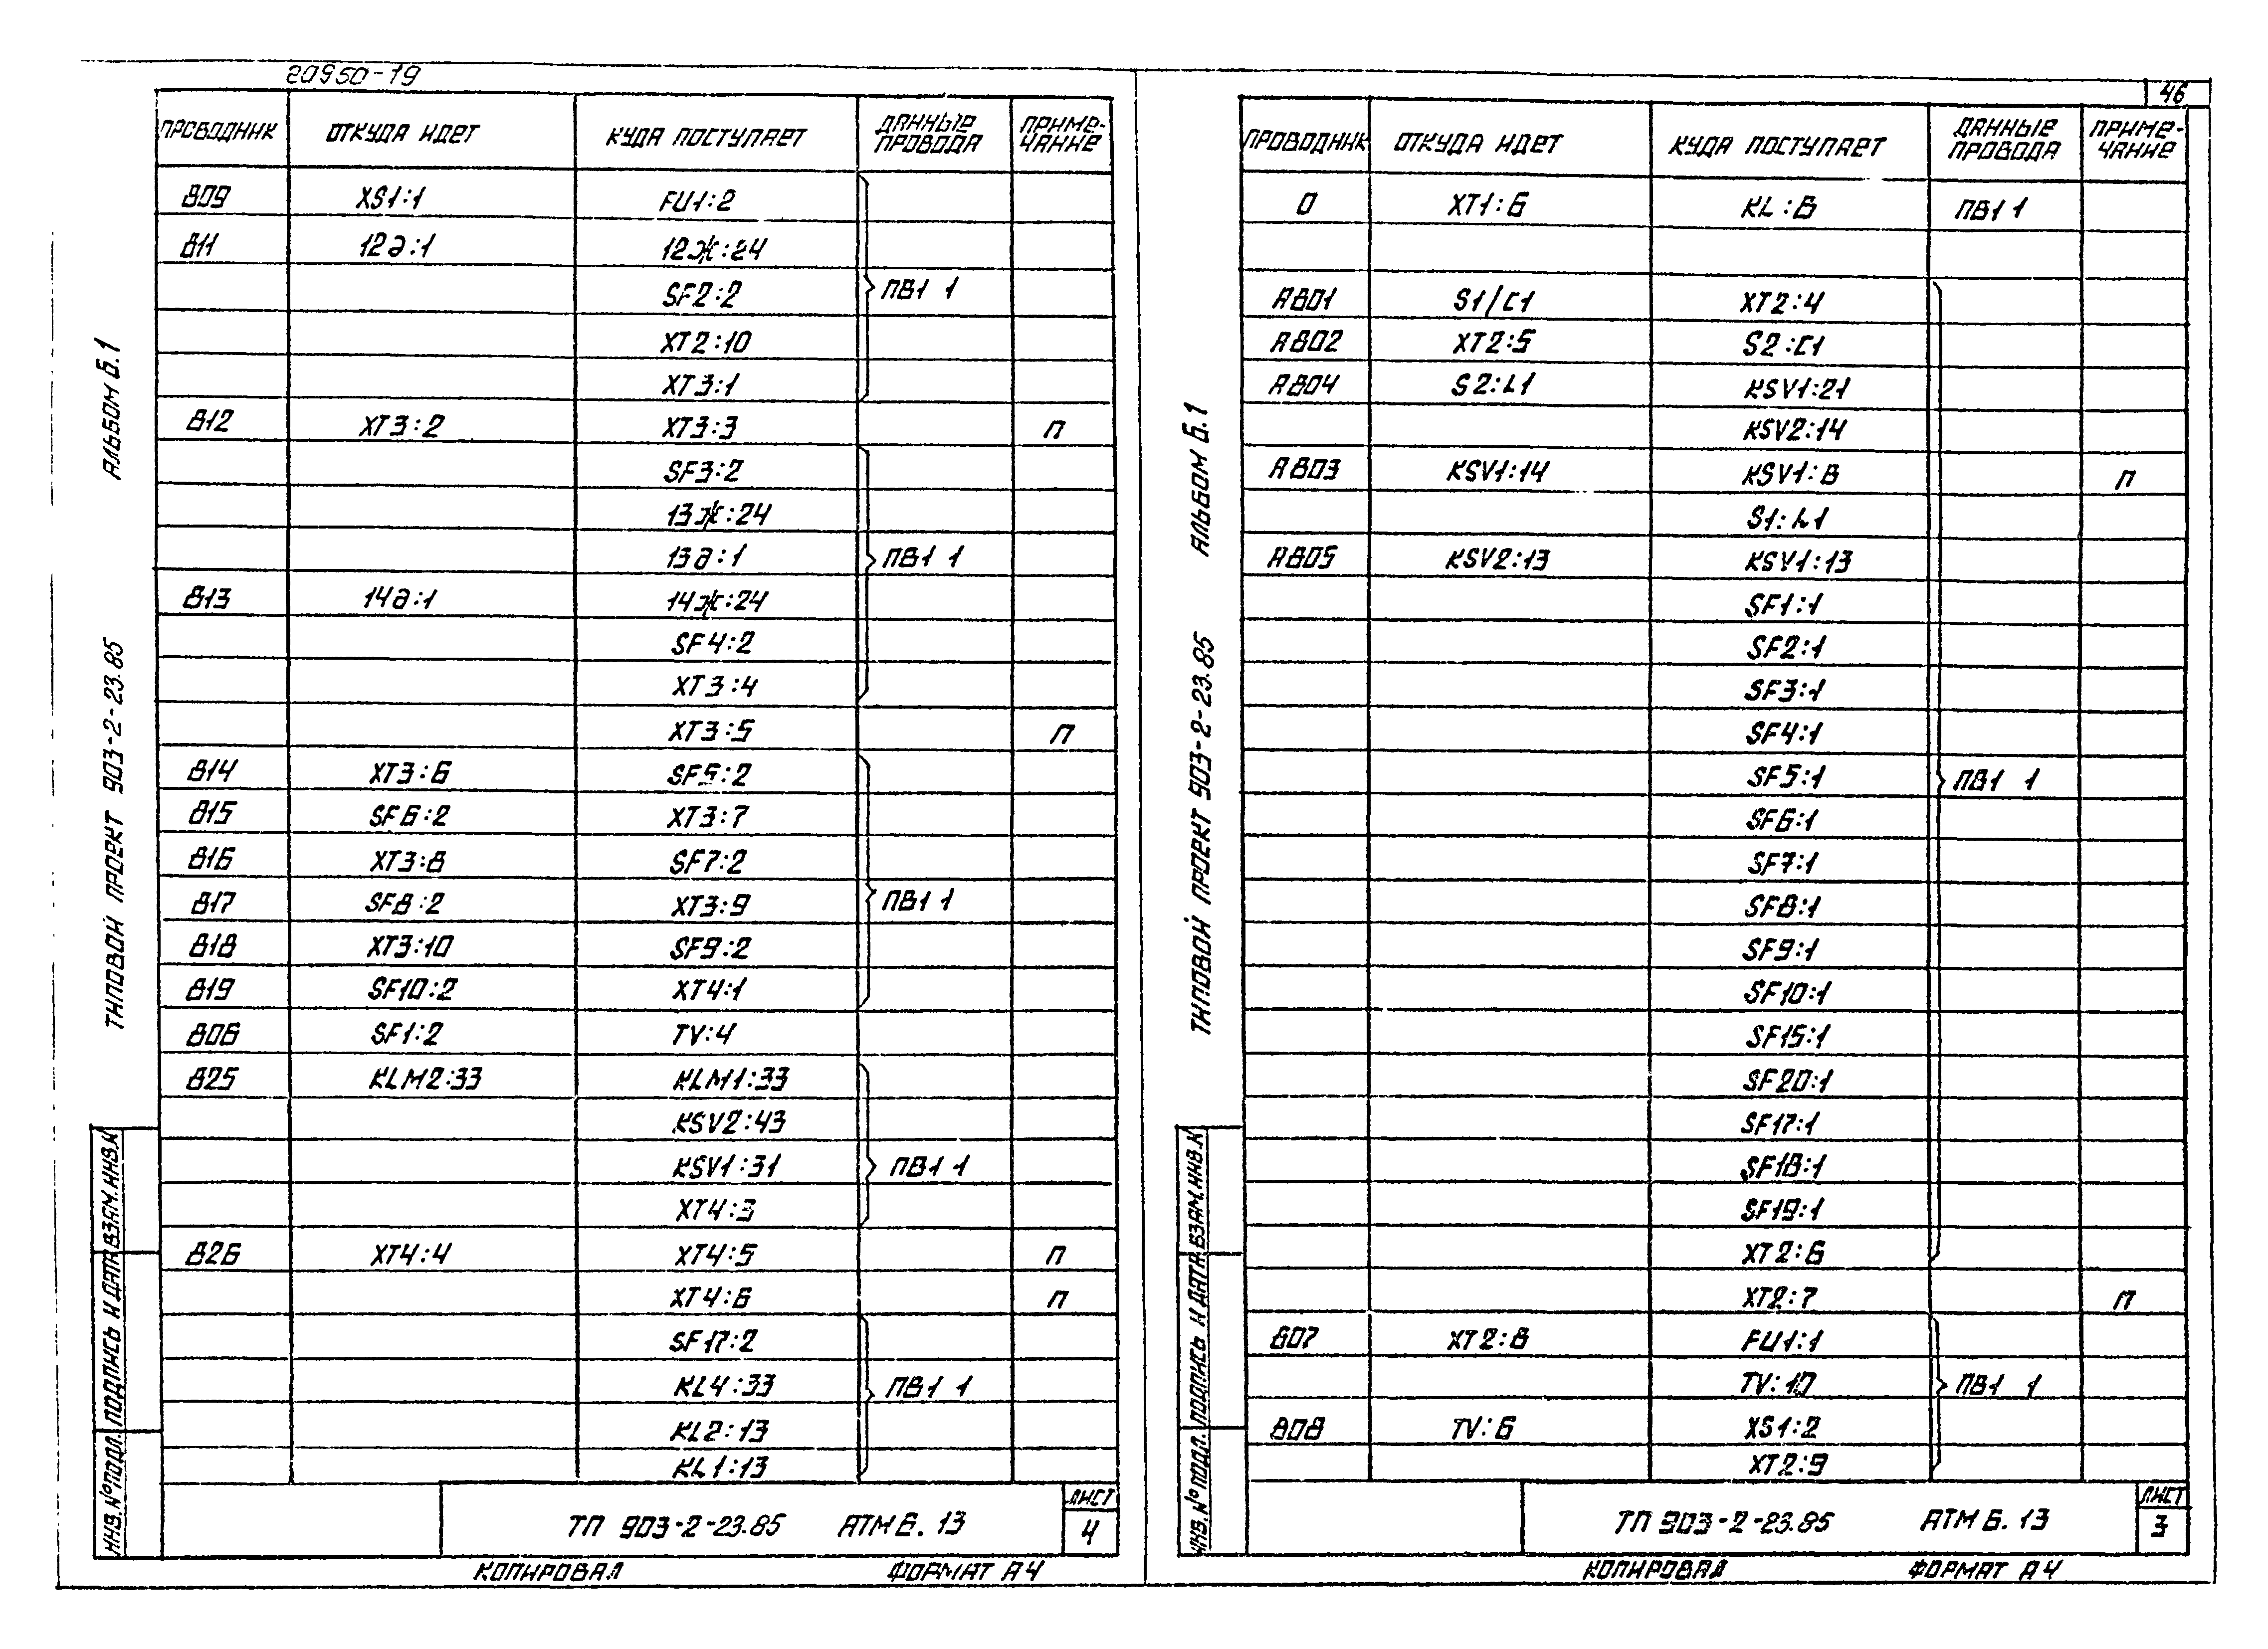 20950-19
ПРОВОДНИК ОТКУДА ИДЕТ КУДА ПОСТУПАЕТ ДАННЫЕ ПРОВОДА ПРИМЕ-ЧАНИЕ
809 XS1:1 FU1:2
811 12д:1 12Ж:24
SF2:2 ПВ1 1
XT2:10
XT3:1
812 XT3:2 XT3:3 П
SF3:2
13Ж:24
13д:1 ПВ1 1
813 14д:1 14Ж:24
SF4:2
XT3:4
XT3:5 П
814 XT3:6 SF5:2
815 SF6:2 XT3:7
816 XT3:8 SF7:2
817 SF8:2 XT3:9 ПВ1 1
818 XT3:10 SF9:2
819 SF10:2 XT4:1
806 SF1:2 TV:4
825 KLM2:33 KLM1:33
KSV2:43
KSV1:31 ПВ1 1
XT4:3
826 XT4:4 XT4:5 П
XT4:6 П
SF17:2
KL4:33 ПВ1 1
KL2:13
KL1:13
ТП 903-2-23.85 АТМ6.13
ЛИСТ
4
КОПИРОВАЛ ФОРМАТ А4
АЛЬБОМ 6.1
ТИПОВОЙ ПРОЕКТ 903-2-23.85
ИНВ.№ПОДЛ. ПОДПИСЬ И ДАТА ВЗАМ.ИНВ.№
46
ПРОВОДНИК ОТКУДА ИДЕТ КУДА ПОСТУПАЕТ ДАННЫЕ ПРОВОДА ПРИМЕ-ЧАНИЕ
0 XT1:6 KL:8 ПВ1 1
А801 S1/C1 XT2:4
А802 XT2:5 S2:C1
А804 S2:L1 KSV1:21
KSV2:14
А803 KSV1:14 KSV1:8 П
S1:L1
А805 KSV2:13 KSV1:13
SF1:1
SF2:1
SF3:1
SF4:1
SF5:1 ПВ1 1
SF6:1
SF7:1
SF8:1
SF9:1
SF10:1
SF15:1
SF20:1
SF17:1
SF18:1
SF19:1
XT2:6
XT2:7 П
807 XT2:8 FU1:1
TV:10 ПВ1 1
808 TV:6 XS1:2
XT2:9
ТП 903-2-23.85 АТМ6.13
ЛИСТ
3
КОПИРОВАЛ ФОРМАТ А4
АЛЬБОМ 6.1
ТИПОВОЙ ПРОЕКТ 903-2-23.85
ИНВ.№ПОДЛ. ПОДПИСЬ И ДАТА ВЗАМ.ИНВ.№